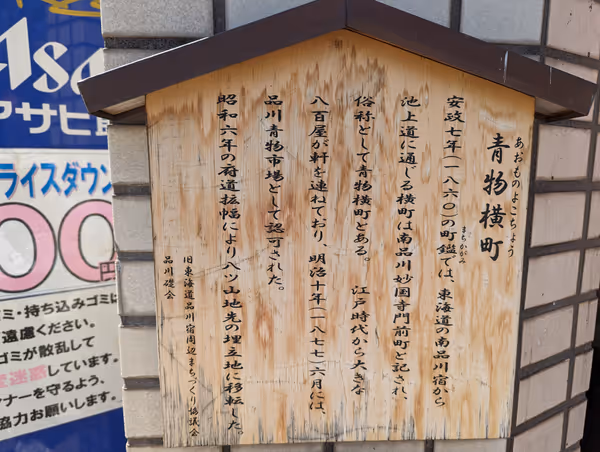 あおものよこちょう
青物横町
安政七年(一八六〇)の町鑑では、東海道の南品川宿から
まちかがみ
池上道に通じる横町は南品川妙国寺門前町と記され、
俗称として青物横町とある。　江戸時代から大きな
八百屋が軒を連ねており、明治十年(一八七七)六月には、
品川青物市場として認可された。
昭和六年の府道拡幅により八ツ山地先の埋立地に移転した。
旧東海道品川宿周辺まちづくり協議会
品川礎会
Asa
アサヒ
ライスダウン
00円
ミ・持ち込みゴミは
遠慮ください。
ゴミが散乱して
迷惑しています。
ナーを守るよう、
協力お願いします。